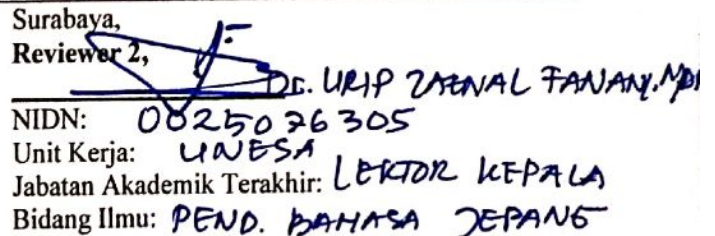 Surabaya,
Reviewer 2,
Dr. URIP ZAENAL FANANI, MPd
NIDN: 0025076305
Unit Kerja: UNESA
Jabatan Akademik Terakhir: LEKTOR KEPALA
Bidang Ilmu: PEND. BAHASA JEPANG